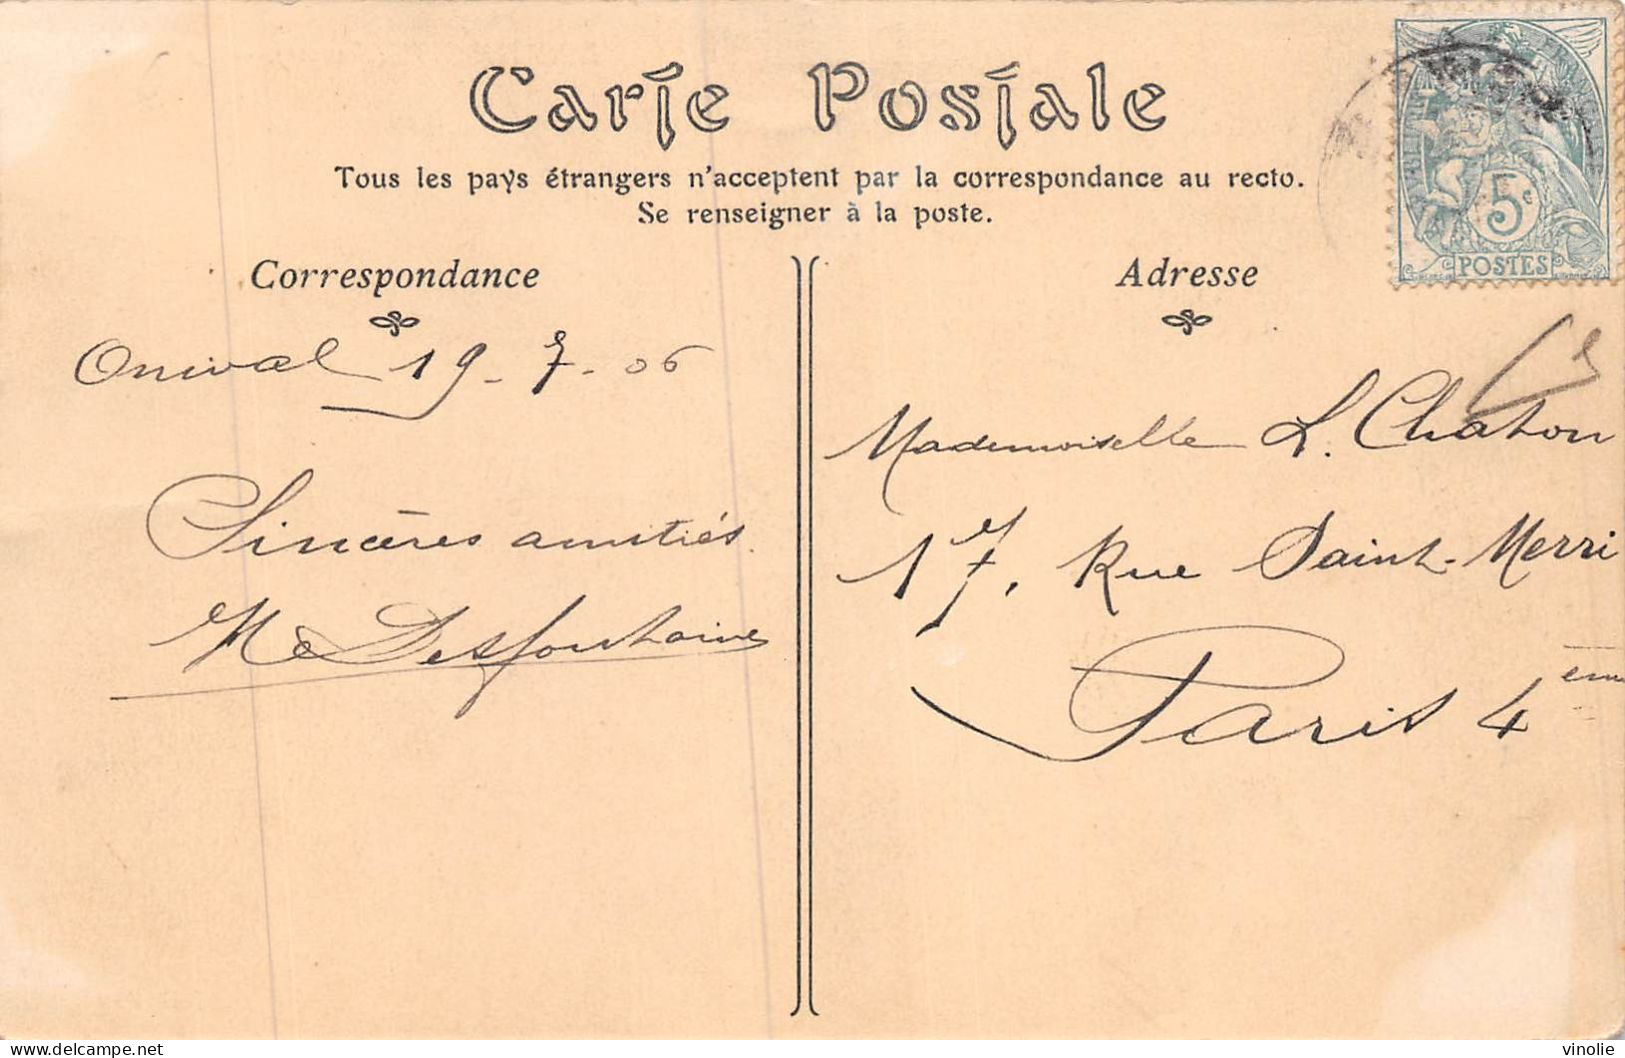 Carte Postale
Tous les pays étrangers n'acceptent par la correspondance au recto.
Se renseigner à la poste.
Correspondance
Onival 19-7-06
Sincères amitiés.
M Desfontaines
Adresse
Mademoiselle L. Chaton
17, Rue Saint-Merri
Paris 4ème
5c
POSTES
delcampe.net
vinolie